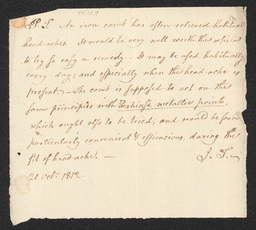 P.S. An iron comb has often relieved habitual
head-aches. It would be very well worth that
to try so easy a remedy. It may be used habitually
every day; and especially when the head-ache is
present. The comb is supposed to act on the
same principles with Perkins's metallic points,
which ought also to be tried; and would be found
particularly convenient & efficacious, during the
fit of head-ache.
20 Octr. 1812